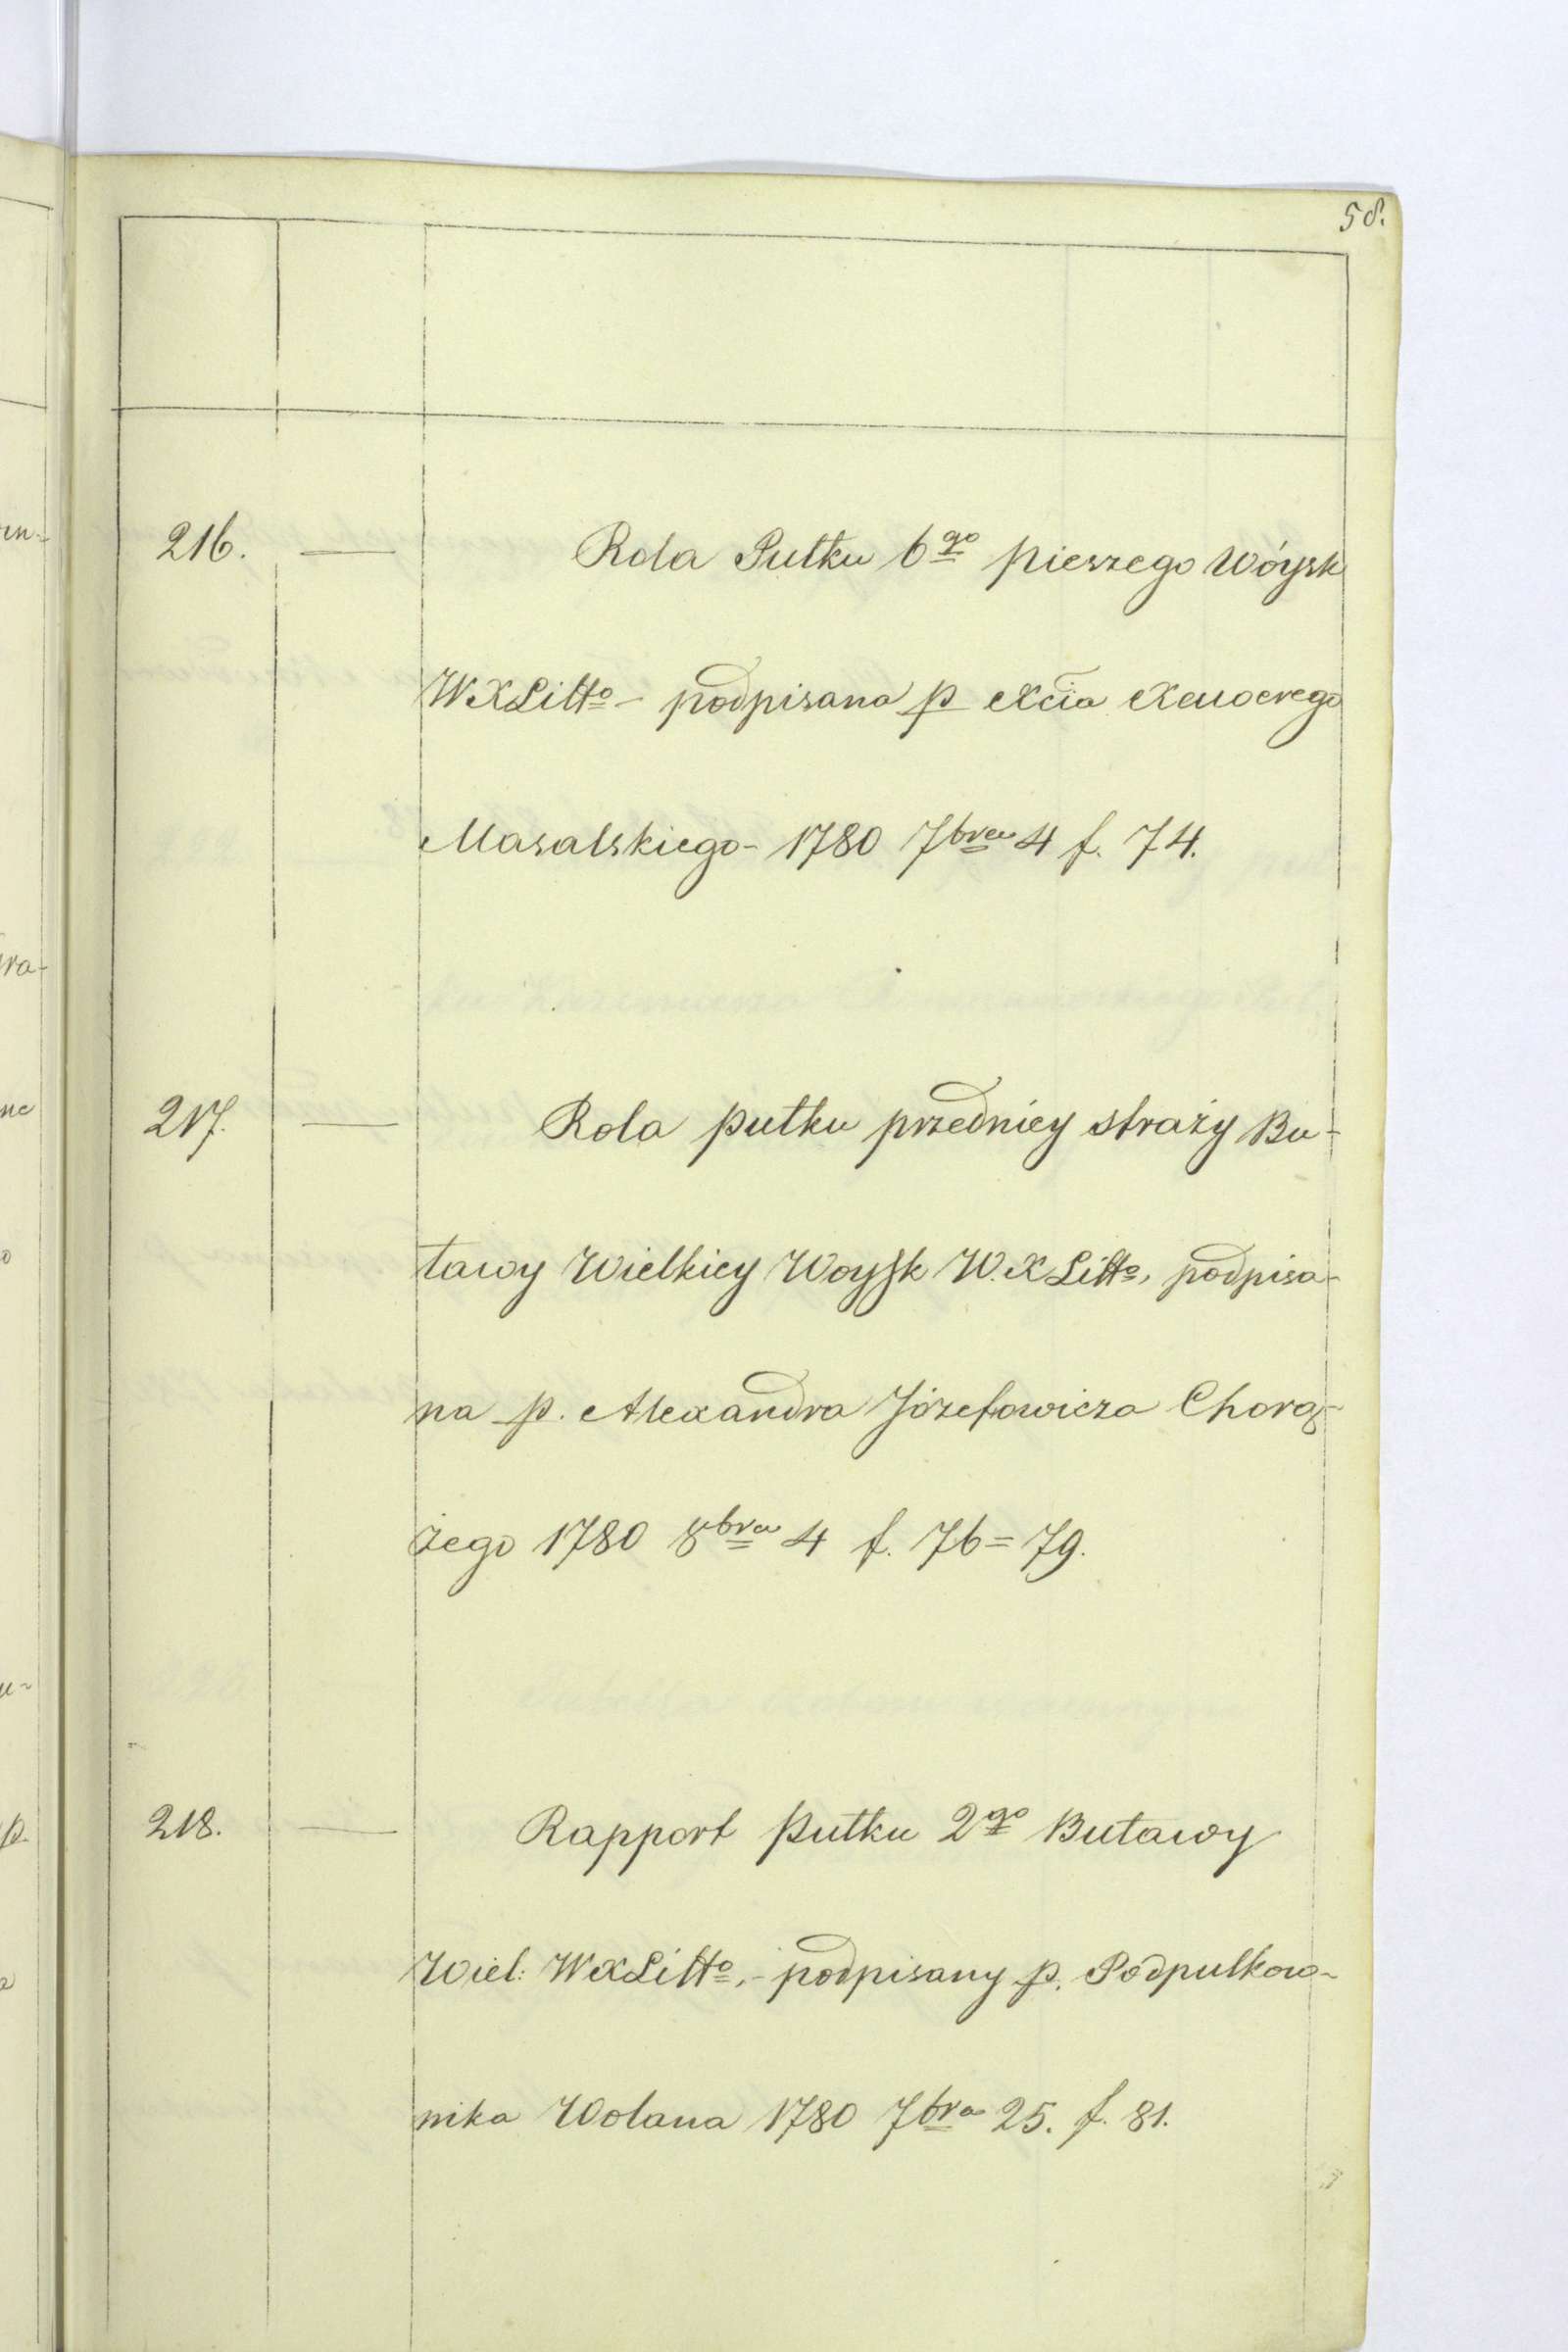 58.
216. — Rola Pułku 6go pieszego Wóysk
WXLitto - podpisana p Xcia Xawerego
Masalskiego - 1780 7bra 4 f. 74.
217. — Rola pułku przedniey straży Bu-
ławy Wielkiey Woysk W.XLitto, podpisa-
na p. Alexandra Józefowicza Chorą-
żego 1780 8bra 4 f. 76=79.
218. — Rapport pułku 2go Buławy
Wiel: WXLitto, - podpisany p. Pódpułkow-
nika Wolana 1780 7bra 25. f. 81.